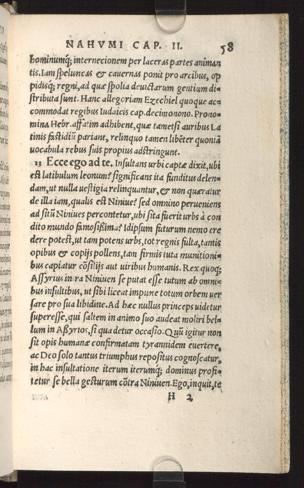 NAHVMI CAP. II. 58
hominumq́; internecionem per laceras partes animan
tis. Iam speluncas & cauernas ponit pro arcibus, op
pidisq́; regni, ad quæ spolia deuictarum gentium di-
stributa sunt. Hanc allegoriam Ezechiel quoque ac-
commodat regibus Iudaicis cap. decimonono. Prono-
mina Hebr. affatim adhibent, quæ tametsi auribus La
tinis fastidiū pariant, relinquo tamen libēter quoniā
vocabula rebus suis propius adstringunt.
13 Ecce ego ad te. Insultans urbi captæ dixit, ubi
est latibulum leonum? significans ita funditus delen-
dam, ut nulla uestigia relinquantur, & non quæratur
de illa iam, qualis est Niniue? sed omnino perueniens
ad sitū Niniues percontetur, ubi sita fuerit urbs à con
dito mundo famosissima? Idipsum futurum nemo cre
dere potest, ut tam potens urbs, tot regnis fulta, tantis
opibus & copijs pollens, tam firmis iuta munitioni-
bus capiatur cōsilijs aut uiribus humanis. Rex quoq́;
Assyrius intra Niniuen se putat esse tutum ab omni-
bus insultibus, ut sibi liceat impune totum orbem uer
sare pro sua libidine. Ad hæc nullus princeps uidetur
superesse, qui saltem in animo suo audeat moliri bel-
lum in Assyrios, si qua detur occasio. Quū igitur non
sit opis humanæ confirmatam tyrannidem euertere,
ac Deo solo tantus triumphus repositus cognoscatur,
in hac insultatione iterum iterumq́; dominus profi-
tetur se bella gesturum cōtra Niniuen. Ego, inquit, te
H 2